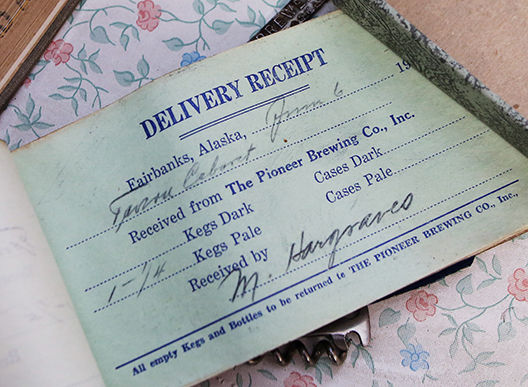 DELIVERY RECEIPT
Fairbanks, Alaska, June 6 19
Cabaret
Received from The Pioneer Brewing Co., Inc.
Kegs Dark Cases Dark
1-1/4 Kegs Pale Cases Pale
Received by M. Hargraves
All empty Kegs and Bottles to be returned to THE PIONEER BREWING CO., Inc.,